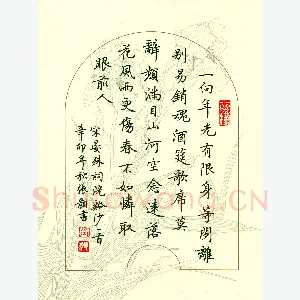 一向年光有限身等閒離
别易銷魂酒筵歌席莫
辭頻滿目山河空念遠落
花風雨更傷春不如憐取
眼前人
宋晏殊詞浣溪沙一首
辛卯年秋張
書